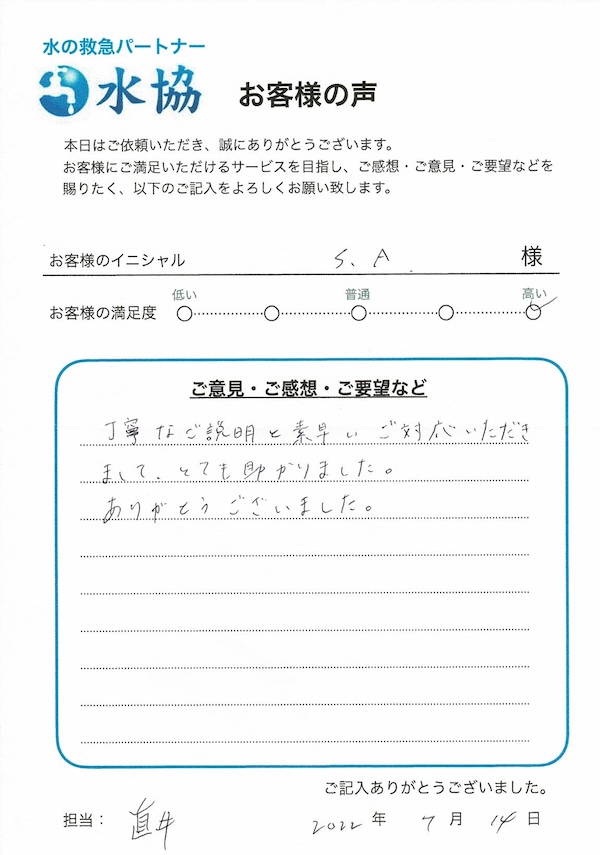 水の救急パートナー
水協 お客様の声
本日はご依頼いただき、誠にありがとうございます。
お客様にご満足いただけるサービスを目指し、ご感想・ご意見・ご要望などを
賜りたく、以下のご記入をよろしくお願い致します。
お客様のイニシャル S.A. 様
低い 普通 高い
お客様の満足度
ご意見・ご感想・ご要望など
丁寧なご説明と素早いご対応いただき
まして、とても助かりました。
ありがとうございました。
ご記入ありがとうございました。
担当： 直井 2022 年 7 月 14 日